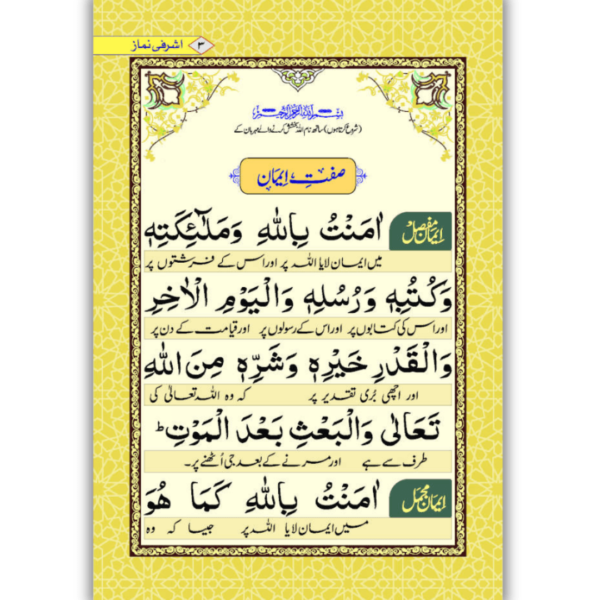 ۳ اشرفی نماز
بِسْمِ اللهِ الرَّحْمٰنِ الرَّحِيْمِ
(شروع کرتا ہوں) ساتھ نام اللہ بخشش کرنے والے مہربان کے
صفتِ اِیمَان
اِیمانِ مفصل
اٰمَنْتُ بِاللهِ وَمَلٰٓئِكَتِهٖ
میں ایمان لایا اللہ پر اور اس کے فرشتوں پر
وَكُتُبِهٖ وَرُسُلِهٖ وَالْيَوْمِ الْاٰخِرِ
اور اس کی کتابوں پر اور اس کے رسولوں پر اور قیامت کے دن پر
وَالْقَدْرِ خَيْرِهٖ وَشَرِّهٖ مِنَ اللهِ
اور اچھی بُری تقدیر پر کہ وہ اللہ تعالیٰ کی
تَعَالٰى وَالْبَعْثِ بَعْدَ الْمَوْتِ ؕ
طرف سے ہے اور مرنے کے بعد جی اُٹھنے پر۔
اِیمانِ مجمل
اٰمَنْتُ بِاللهِ كَمَا هُوَ
میں ایمان لایا اللہ پر جیسا کہ وہ